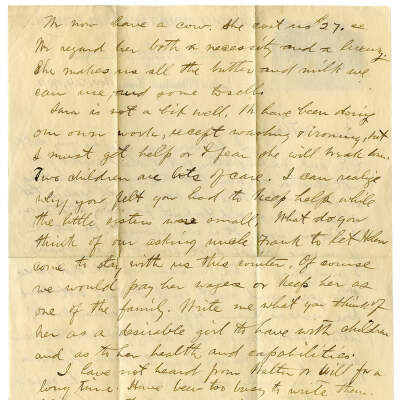 We now have a cow. She cost us $27.00
We regard her both a necessity and a luxury.
She makes us all the butter and milk we
can use, and some to sell.
is not a bit well. We have been doing
our own work, except washing & ironing, but
I must get help or I fear she will break down.
Two children are lots of care. I can realize
why you felt you had to keep help while
the little sisters were small. What do you
think of our asking uncle Frank to let Helen
come to stay with us this winter. Of course
we would pay her wages or keep her as
one of the family. Write me what you think of
her as a desirable girl to have with children
and as to her health and capabilities.
I have not heard from Walter or Will for a
long time. Have been too busy to write them.